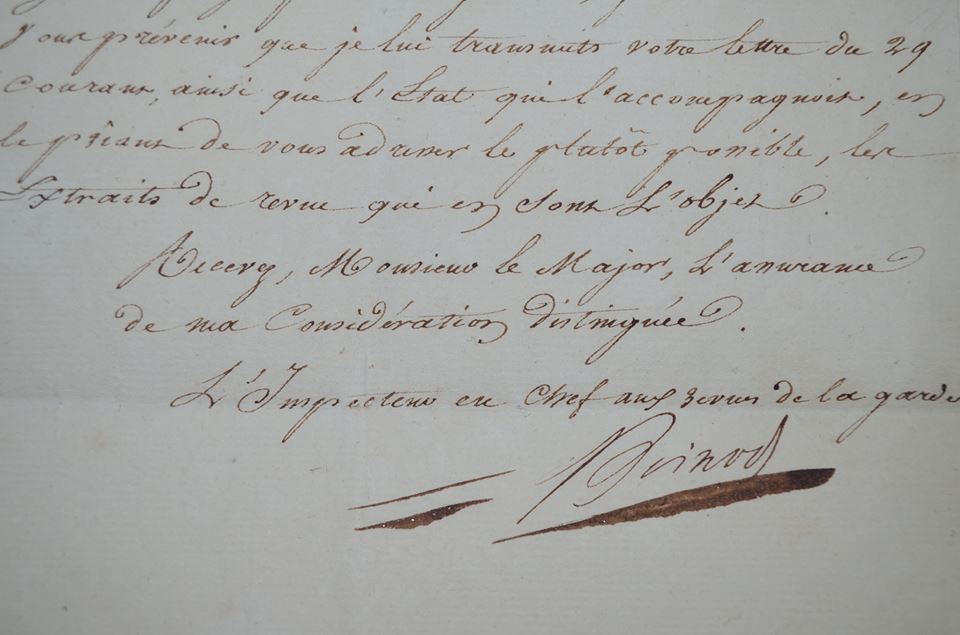 vous prévenir que je lui transmets votre lettre du 29
Courant, ainsi que l'Etat qui l'accompagnoit, en
le priant de vous adresser le plutôt possible, les
Extraits de revue qui en sont L'objet.
Recevez, Monsieur le Major, L'assurance
de ma Considération distinguée.
L'Inspecteur en Chef aux revues de la garde
Boinod